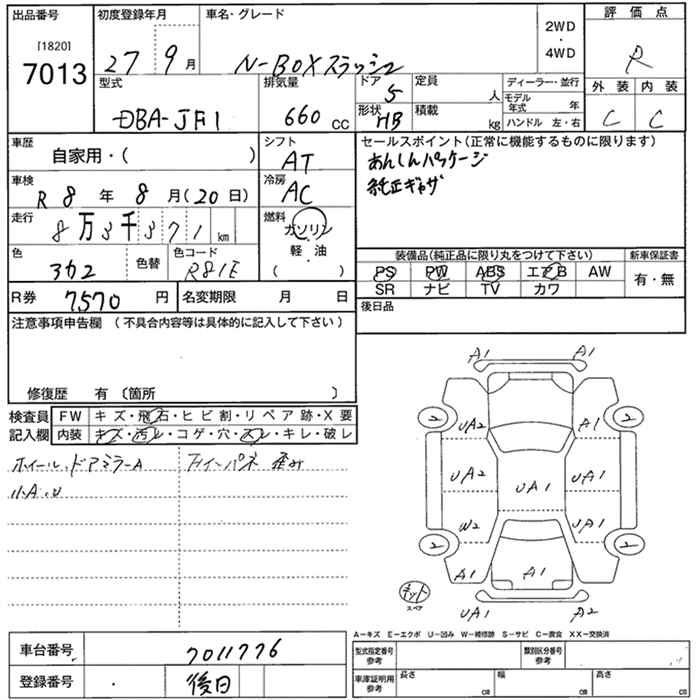 出品番号
[1820]
7013
初度登録年月
27 9月
車名・グレード
N-BOXスラッシュ
2WD
・
4WD
評価点
R
外装 内装
C C
型式
DBA-JF1
排気量
660 cc
ドア
5
形状
HB
定員
人
積載
kg
ディーラー・並行
モデル年式 年
ハンドル 左・右
車歴
自家用・( )
シフト
AT
セールスポイント(正常に機能するものに限ります)
あんしんパッケージ
純正ギャザ
車検
R 8 年 8 月(20日)
冷房
AC
走行
8万3千371 km
燃料
ガソリン
・
軽油
・
( )
色
色替
色コード
R81E
R券
7570 円
名変期限 月 日
装備品(純正品に限り丸をつけて下さい)
PS PW ABS エアB AW
SR ナビ TV カワ
新車保証書
有・無
後日品
注意事項申告欄 (不具合内容等は具体的に記入して下さい)
修復歴 有 (箇所 )
検査員記入欄
FW キズ・飛石・ヒビ割・リペア跡・X要
内装 キズ・汚レ・コゲ・穴・スレ・キレ・破レ
ホイール、ドアミラーA
小A.U
歪み
A1 A1
2 2
UA2 A1
UA2 UA1 UA1
W2 UA1
2 2
A1 A1
スペア
UA1 A2
A-キズ E-エクボ U-凹み W-補修跡 S-サビ C-腐食 XX-交換済
車台番号
7011776
登録番号
後日
型式指定番号 参考
類別区分番号 参考
車庫証明用 参考
長さ cm
幅 cm
高さ cm